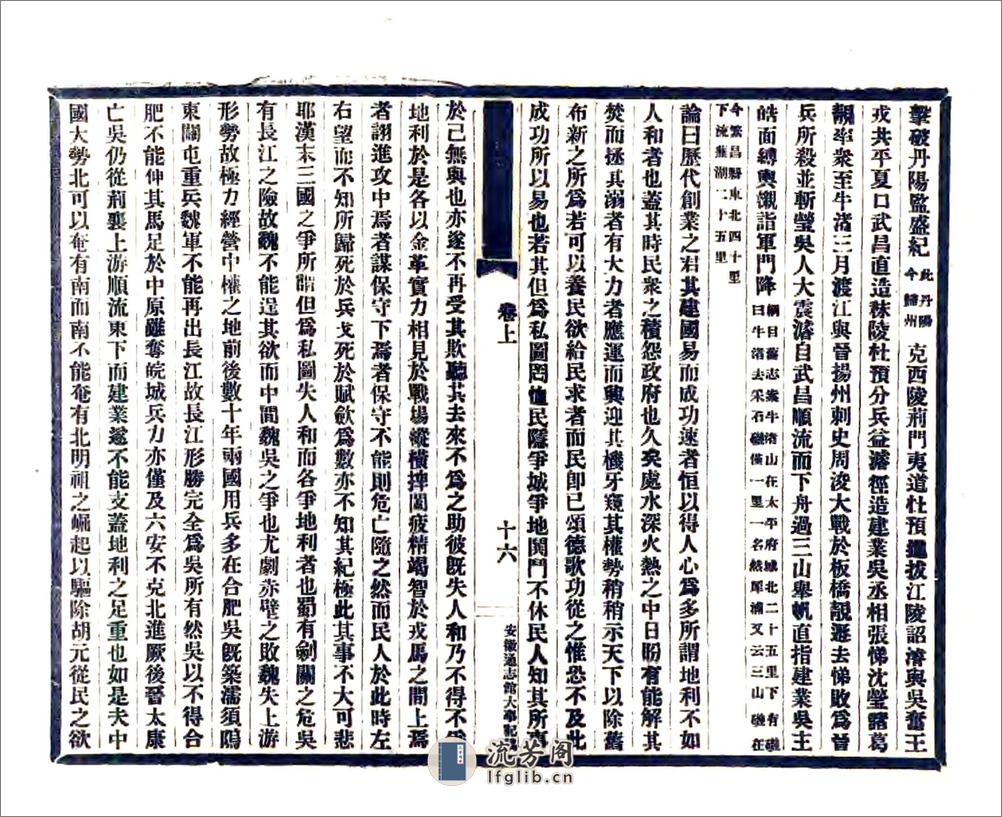 擊破丹陽監盛紀此丹陽今歸州克西陵荊門夷道杜預進拔江陵詔濬與吳奮王
戎共平夏口武昌直造秣陵杜預分兵益濬徑造建業吳丞相張悌沈瑩諸葛
靚率衆至牛渚三月渡江與晉揚州刺史周浚大戰於板橋靚遯去悌敗爲晉
兵所殺並斬瑩吳人大震濬自武昌順流而下舟過三山舉帆直指建業吳主
皓面縛輿櫬詣軍門降綱目舊志案牛渚山在太平府城北二十五里下有磯曰牛渚去采石磯僅一里一名然犀浦又云三山磯在
今繁昌縣東北四十里下流蕪湖二十五里
論曰歷代創業之君其建國易而成功速者恒以得人心爲多所謂地利不如
人和者也蓋其時民衆之積怨政府也久矣處水深火熱之中日盼有能解其
焚而拯其溺者有大力者應運而興迎其機牙窺其權勢稍稍示天下以除舊
布新之所爲若可以養民欲給民求者而民即已頌德歌功從之惟恐不及此
成功所以易也若其但爲私圖罔恤民隱爭城爭地鬩鬥不休民人知其所爲
卷上
十六
安徽通志館大事記稿
於己無與也亦遂不再受其欺聽其去來不爲之助彼旣失人和乃不得不爭
地利於是各以金革實力相見於戰場縱橫捭闔疲精竭智於戎馬之間上焉
者詡進攻中焉者謀保守下焉者保守不能則危亡隨之然而民人於此時左
右望而不知所歸死於兵戈死於賦斂爲數亦不知其紀極此其事不大可悲
耶漢末三國之爭所謂但爲私圖失人和而各爭地利者也蜀有劍閣之危吳
有長江之險故魏不能逞其欲而中間魏吳之爭也尤劇赤壁之敗魏失上游
形勢故極力經營中權之地前後數十年兩國用兵多在合肥吳旣築濡須塢
東關屯重兵魏軍不能再出長江故長江形勝完全爲吳所有然吳以不得合
肥不能伸其馬足於中原雖奪皖城兵力亦僅及六安不克北進厥後晉太康
亡吳仍從荊襄上游順流東下而建業遂不能支蓋地利之足重也如是夫中
國大勢北可以奄有南而南不能奄有北明祖之崛起以驅除胡元從民之欲
流芳阁
lfglib.cn